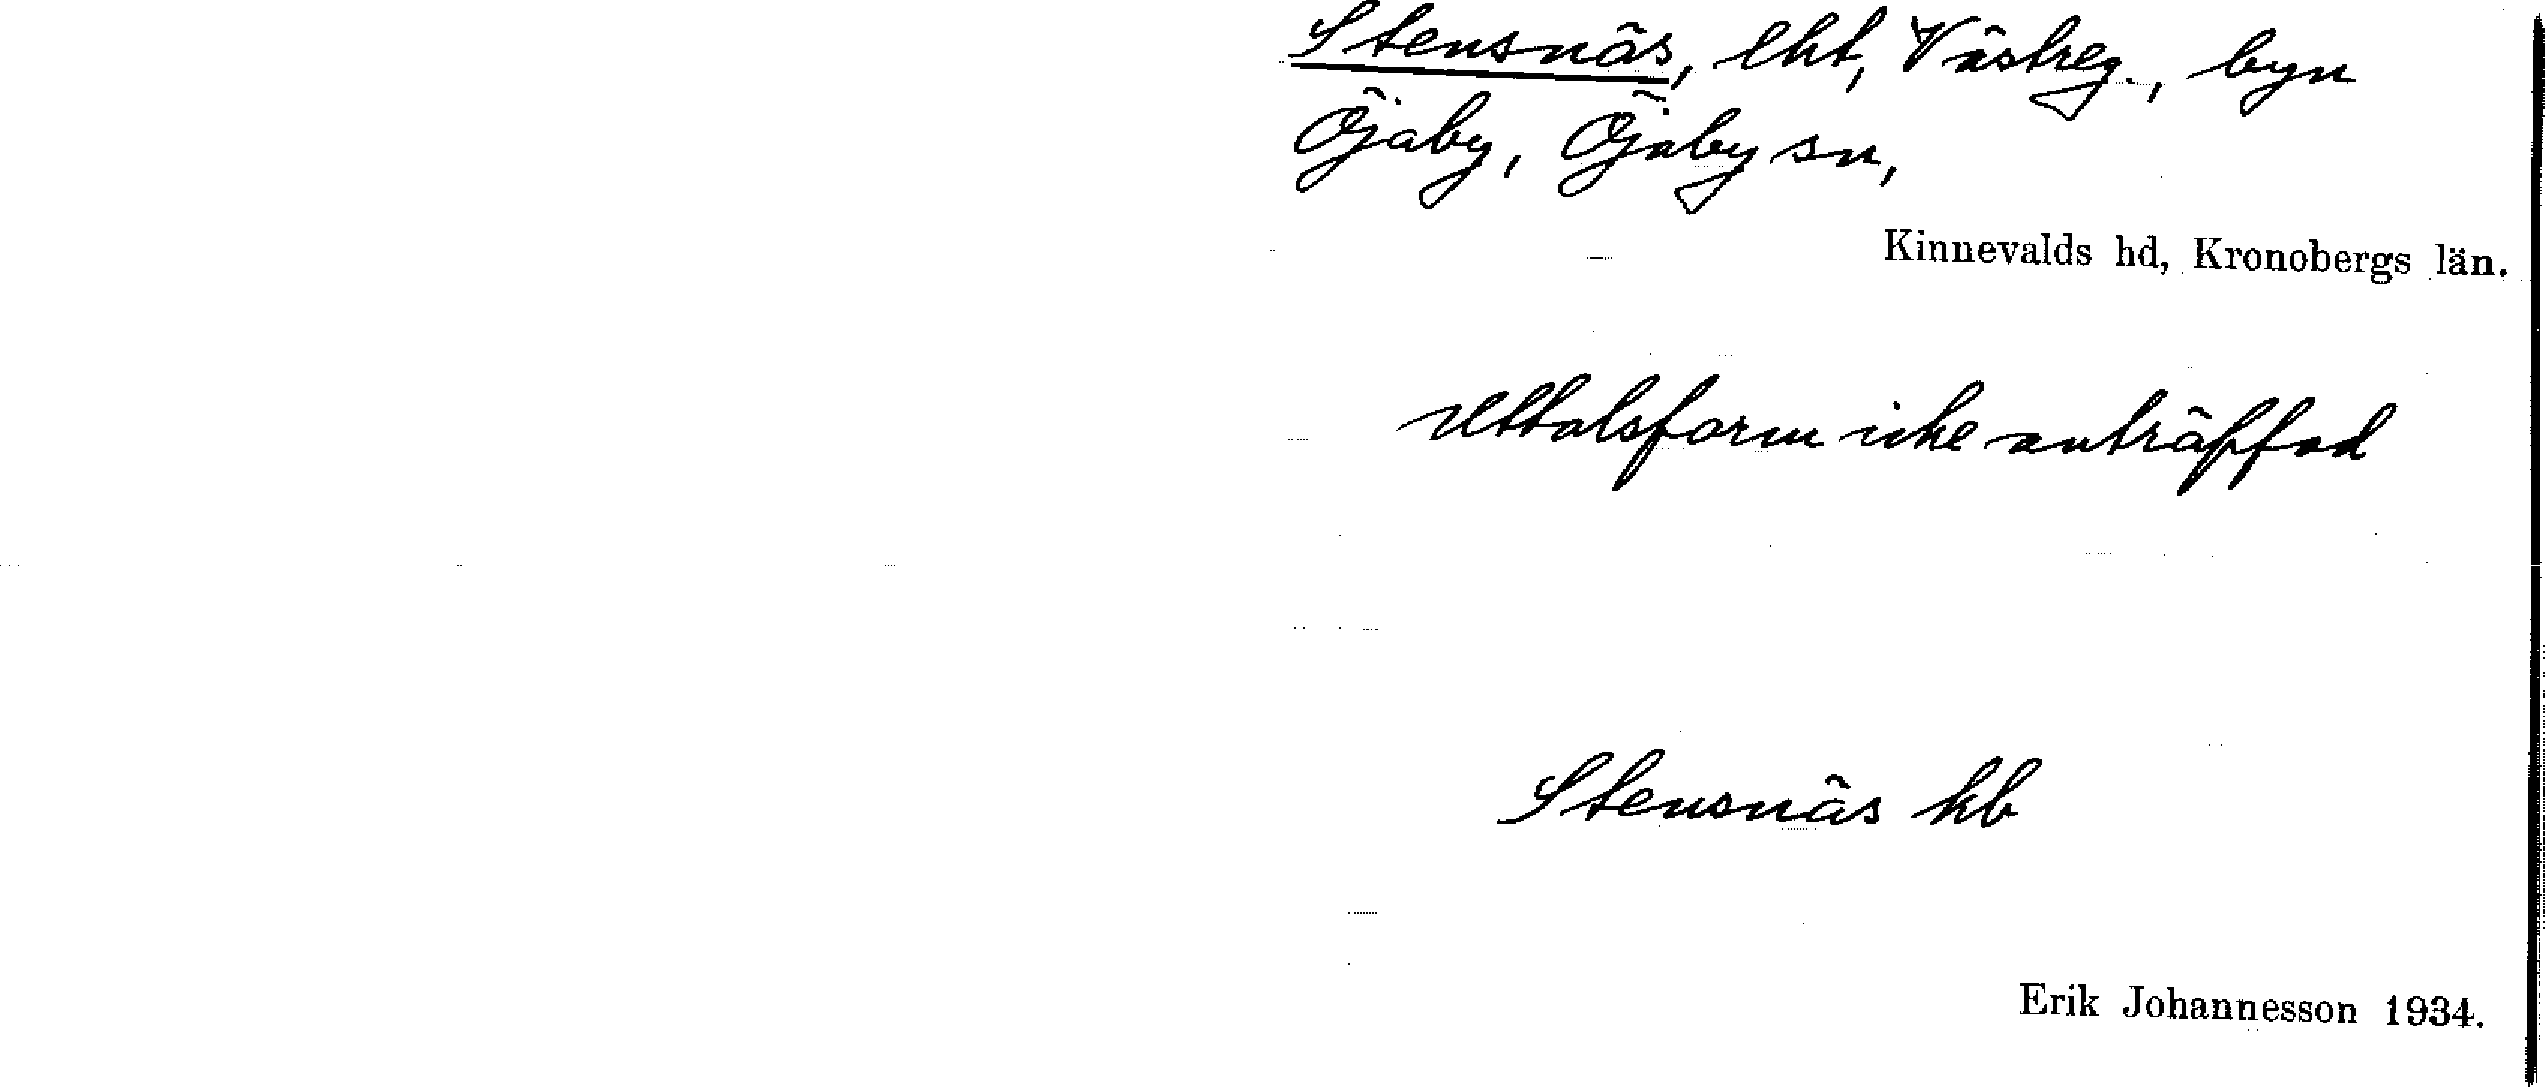 Stensnäs, lht, Västreg., byn
Öjaby, Öjaby sn,
Kinnevalds hd, Kronobergs län.
Uttalsform icke anträffad
Stensnäs kb
Erik Johannesson 1934.